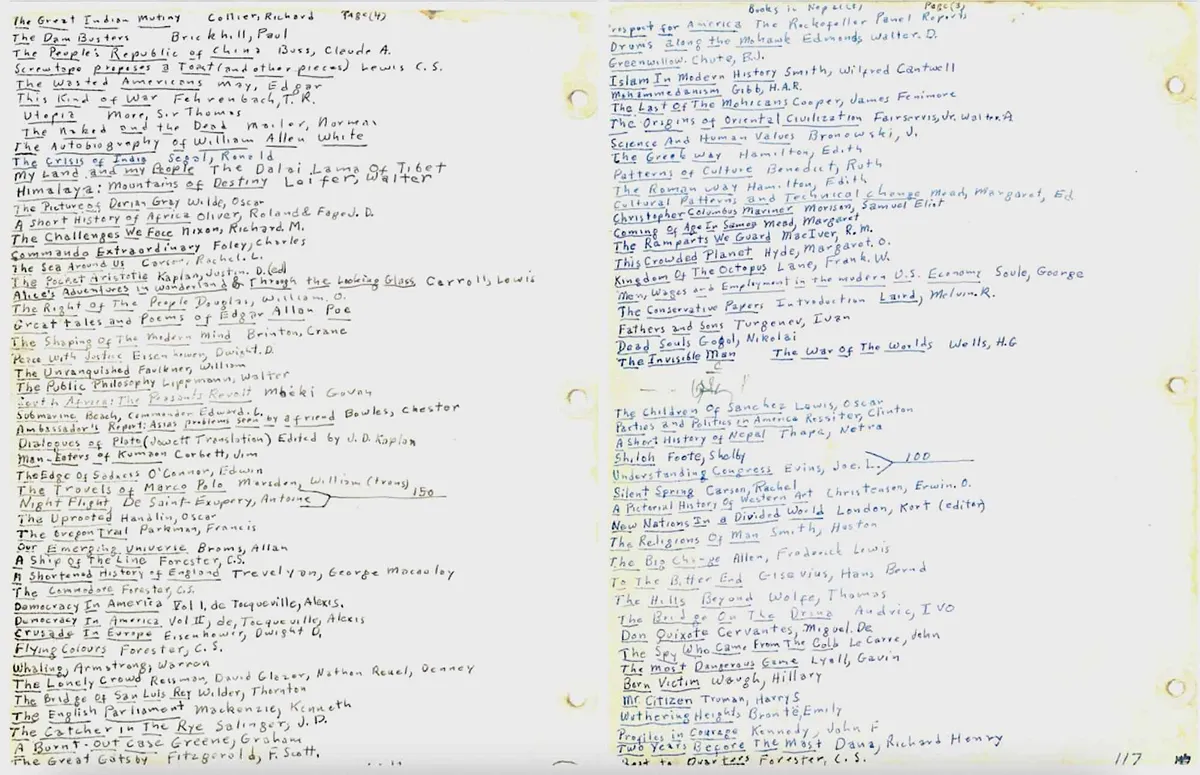 The Great Indian Mutiny Collier, Richard Page (4)
The Dam Busters Brickhill, Paul
The People's Republic of China Buss, Claude A.
Screwtope proposes a Toast (and other pieces) Lewis C. S.
Wasted Americans May, Edgar
This Kind of War Fehrenbach, T. R.
Utopia More, Sir Thomas
The Naked and the Dead Mailer, Norman
The Autobiography of William Allen White
The Crisis of India Segal, Ronald
My Land and my People The Dalai Lama Of Tibet
Himalaya: Mountains of Destiny Leifer, Walter
The Picture of Dorian Gray Wilde, Oscar
A Short History of Africa Oliver, Roland & Fage J. D.
The Challenges We Face Nixon, Richard M.
Commando Extraordinary Foley, Charles
The Sea Around Us Carson, Rachel. L.
Pocket Aristotle Kaplan, Justin. D. (ed)
Alice's Adventures in Wonderland & Through the Looking Glass Carroll, Lewis
The Right of The People Douglas, William. O.
Great tales and Poems of Edgar Allan Poe
The Shaping Of The Modern Mind Brinton, Crane
Peace With Justice Eisenhower, Dwight. D.
The Unvanquished Faulkner, William
The Public Philosophy Lippmann, Walter
South Africa: The Peasants Revolt Mbeki Govan
Submarine Beach, Commander Edward. L.
Ambassadors Report: Asias problems seen by a friend Bowles, Chester
Dialogues of Plato (Jowett Translation) Edited by J. D. Kaplan
Man-Eaters of Kumaon Corbett, Jim
The Edge Of Sadness O'Connor, Edwin
The Travels of Marco Polo Marsden, William (Trans)
Night Flight De Saint-Exupery, Antoine 150
The Uprooted Handlin, Oscar
The Oregon Trail Parkman, Francis
Our Emerging Universe Broms, Allan
Ship Of The Line Forester, C.S.
A Shortened History of England Trevelyan, George Macaulay
The Commodore Forester, C.S.
Democracy In America Vol I, de Tocqueville, Alexis.
Democracy In America Vol II, de, Tocqueville, Alexis
Crusade In Europe Eisenhower, Dwight D.
Flying Colours Forester, C. S.
Whaling, Armstrong, Warren
The Lonely Crowd Reisman, David Glazer, Nathan Reuel, Denney
The Bridge of San Luis Rey Wilder, Thornton
The English Parliament Mackenzie, Kenneth
The Catcher in The Rye Salinger, J.D.
A Burnt-Out Case Greene, Graham
The Great Gatsby Fitzgerald, F. Scott.
Books in Nepal Page (3)
Prospect for America The Rockefeller Panel Reports
Drums along the Mohawk Edmonds, Walter. D.
Greenwillow. Chute, B.J.
Islam In Modern History Smith, Wilfred Cantwell
Mohammedanism Gibb, H.A.R.
The Last Of The Mohicans Cooper, James Fenimore
The Origins of Oriental Civilization Fairservis, Jr. Walter. A
Science And Human Values Bronowski, J.
The Greek Way Hamilton, Edith
Patterns of Culture Benedict, Ruth
The Roman Way Hamilton, Edith
Cultural Patterns and Technical Change Mead, Margaret, Ed
Christopher Columbus Mariner Morison, Samuel Eliot
Coming Of Age In Samoa Mead, Margaret
The Ramparts We Guard MacIver, R.M.
This Crowded Planet Hyde, Margaret. O.
Kingdom Of The Octopus Lane, Frank. W.
Men, Wages and Employment in the modern U.S. Economy Soule, George
The Conservative Papers Introduction Laird, Melvin. R.
Fathers and Sons Turgenev, Ivan
Dead Souls Gogol, Nikolai
The Invisible Man The War Of The Worlds Wells, H.G
The Children Of Sanchez Lewis, Oscar
Parties and Politics in America Rossiter, Clinton
A Short History of Nepal Thapa, Netra
Shiloh Foote, Shelby
Understanding Congress Evins, Joe. L. 100
Silent Spring Carson, Rachel
A Pictorial History Of Western Art Christensen, Erwin. O.
New Nations In a Divided World London, Kurt (editor)
The Religions Of Man Smith, Huston
The Big Change Allen, Frederick Lewis
To The Bitter End Gisevius, Hans Bernd
The Hills Beyond Wolfe, Thomas
The Bridge On The Drina Andric, IVO
Don Quixote Cervantes, Miguel. De
The Spy Who Came From The Cold Le Carre, John
The Most Dangerous Game Lyall, Gavin
Born Victim Waugh, Hillary
Mr Citizen Truman, Harry S
Wuthering Heights Brontë, Emily
Profiles in Courage Kennedy, John F
Two Years Before The Mast Dana, Richard Henry
Beat to Quarters Forester, C. S.
117